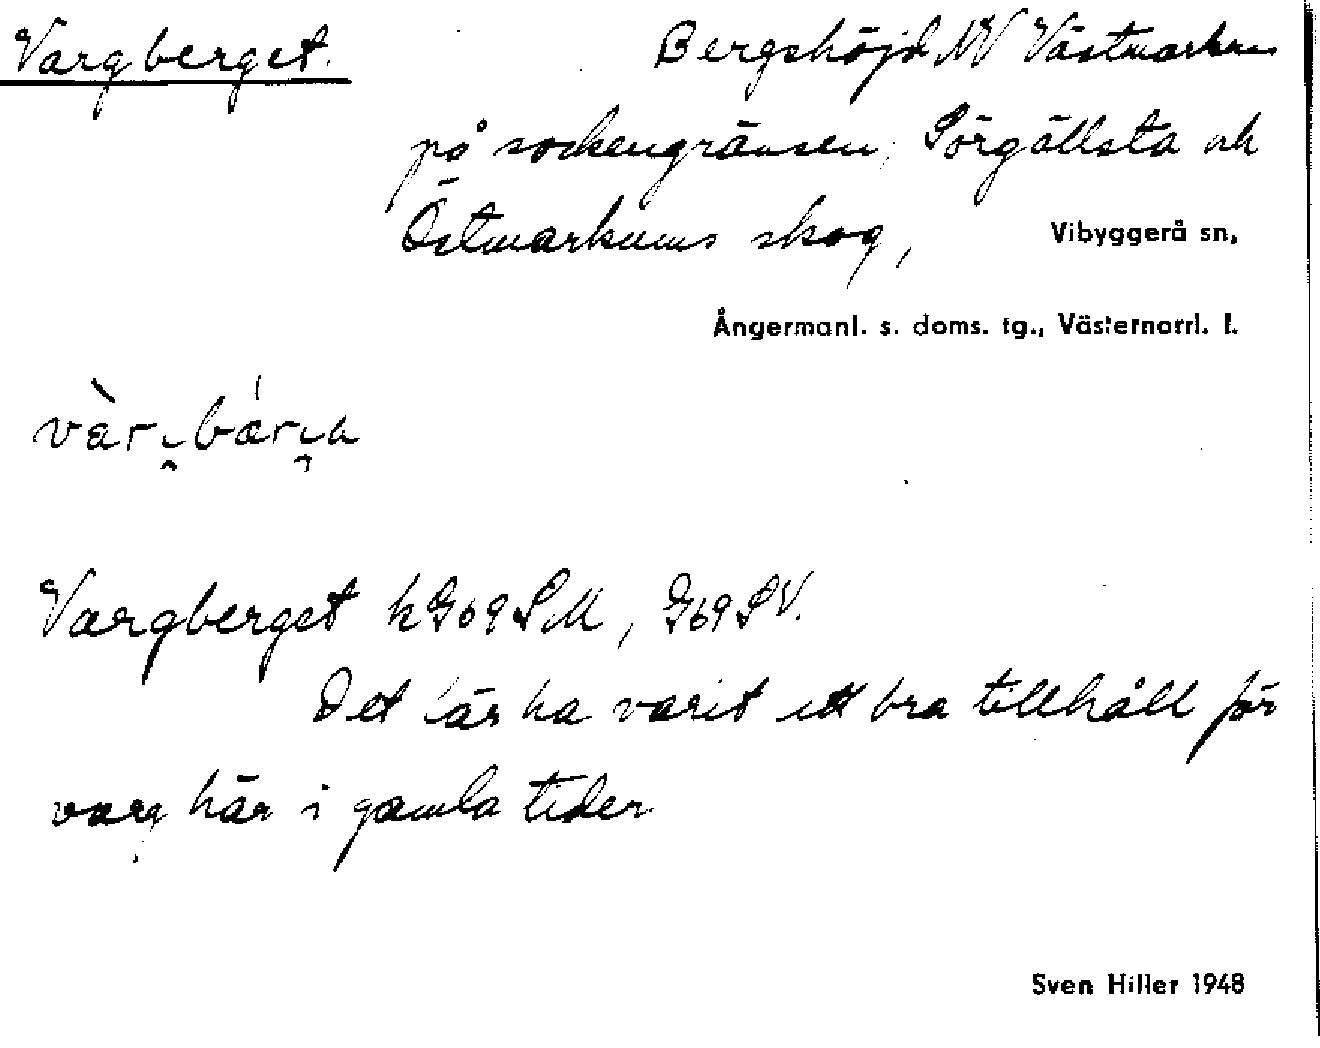 Vargberget. Bergshöjd NV Västmarkum
på sockengränsen, Sörgällsta och
Östmarkums skog, Vibyggerå sn,
Ångermanl. s. doms. tg., Västernorrl. l.
Vargberget hG69SM, G69SV.
Det lär ha varit ett bra tillhåll för
varg här i gamla tider
Sven Hiller 1948